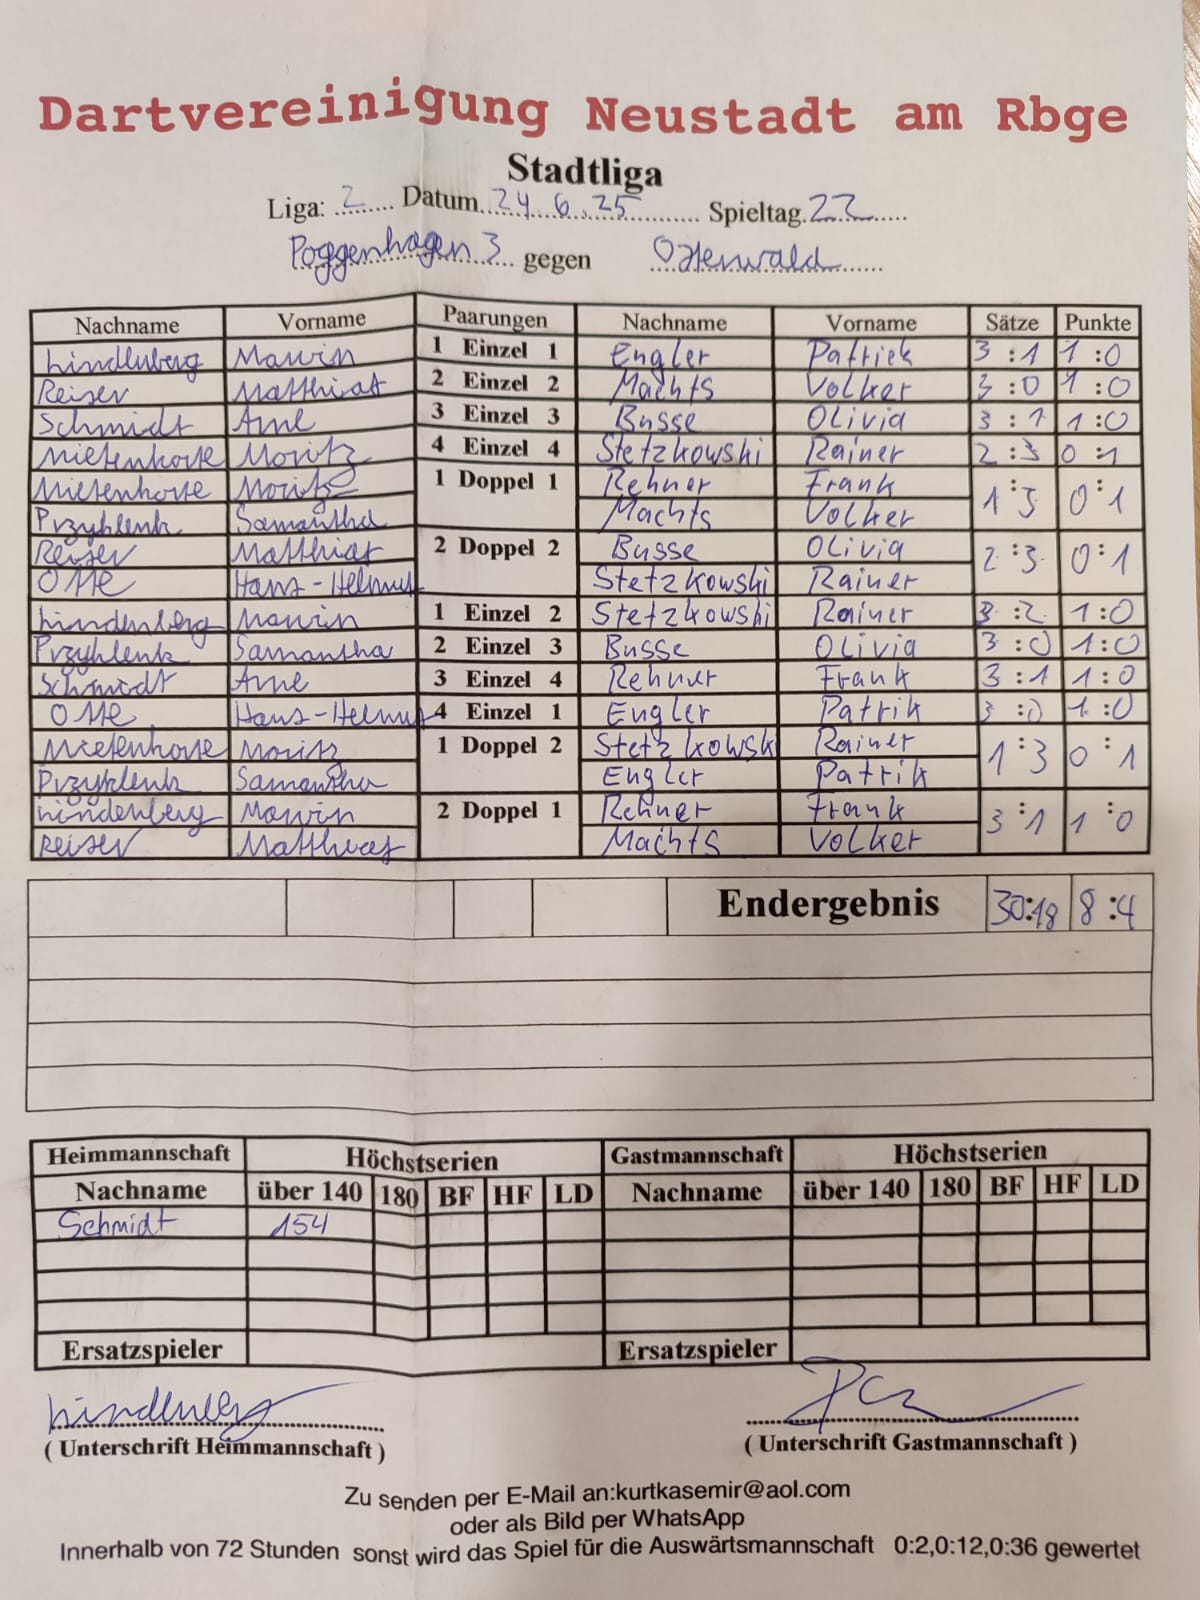 Dartvereinigung Neustadt am Rbge
Stadtliga
Liga: 2 Datum 24.6.25 Spieltag 22
Poggenhagen 3 gegen Osterwald
Nachname Vorname Paarungen Nachname Vorname Sätze Punkte
Lindenberg Marvin 1 Einzel 1 Engler Patrick 3:1 1:0
Reiser Matthias 2 Einzel 2 Machts Volker 3:0 1:0
Schmidt Arne 3 Einzel 3 Busse Olivia 3:1 1:0
Miefenhove Moritz 4 Einzel 4 Stetzkowski Rainer 2:3 0:1
Miefenhove Moritz 1 Doppel 1 Rehner Frank 1:3 0:1
Przyklenk Samantha Machts Volker
Reiser Matthias 2 Doppel 2 Busse Olivia 2:3 0:1
Otte Hans-Helmut Stetzkowski Rainer
Lindenberg Marvin 1 Einzel 2 Stetzkowski Rainer 3:2 1:0
Przyklenk Samantha 2 Einzel 3 Busse Olivia 3:0 1:0
Schmidt Arne 3 Einzel 4 Rehner Frank 3:1 1:0
Otte Hans-Helmut 4 Einzel 1 Engler Patrik 3:0 1:0
Miefenhove Moritz 1 Doppel 2 Stetzkowsk Rainer 1:3 0:1
Przyklenk Samantha Engler Patrik
Lindenberg Marvin 2 Doppel 1 Rehner Frank 3:1 1:0
Reiser Matthias Machts Volker
Endergebnis 30:18 8:4
Heimmannschaft Höchstserien Gastmannschaft Höchstserien
Nachname über 140 180 BF HF LD Nachname über 140 180 BF HF LD
Schmidt 154
Ersatzspieler Ersatzspieler
Lindenberg
( Unterschrift Heimmannschaft ) ( Unterschrift Gastmannschaft )
Zu senden per E-Mail an:kurtkasemir@aol.com
oder als Bild per WhatsApp
Innerhalb von 72 Stunden sonst wird das Spiel für die Auswärtsmannschaft 0:2,0:12,0:36 gewertet